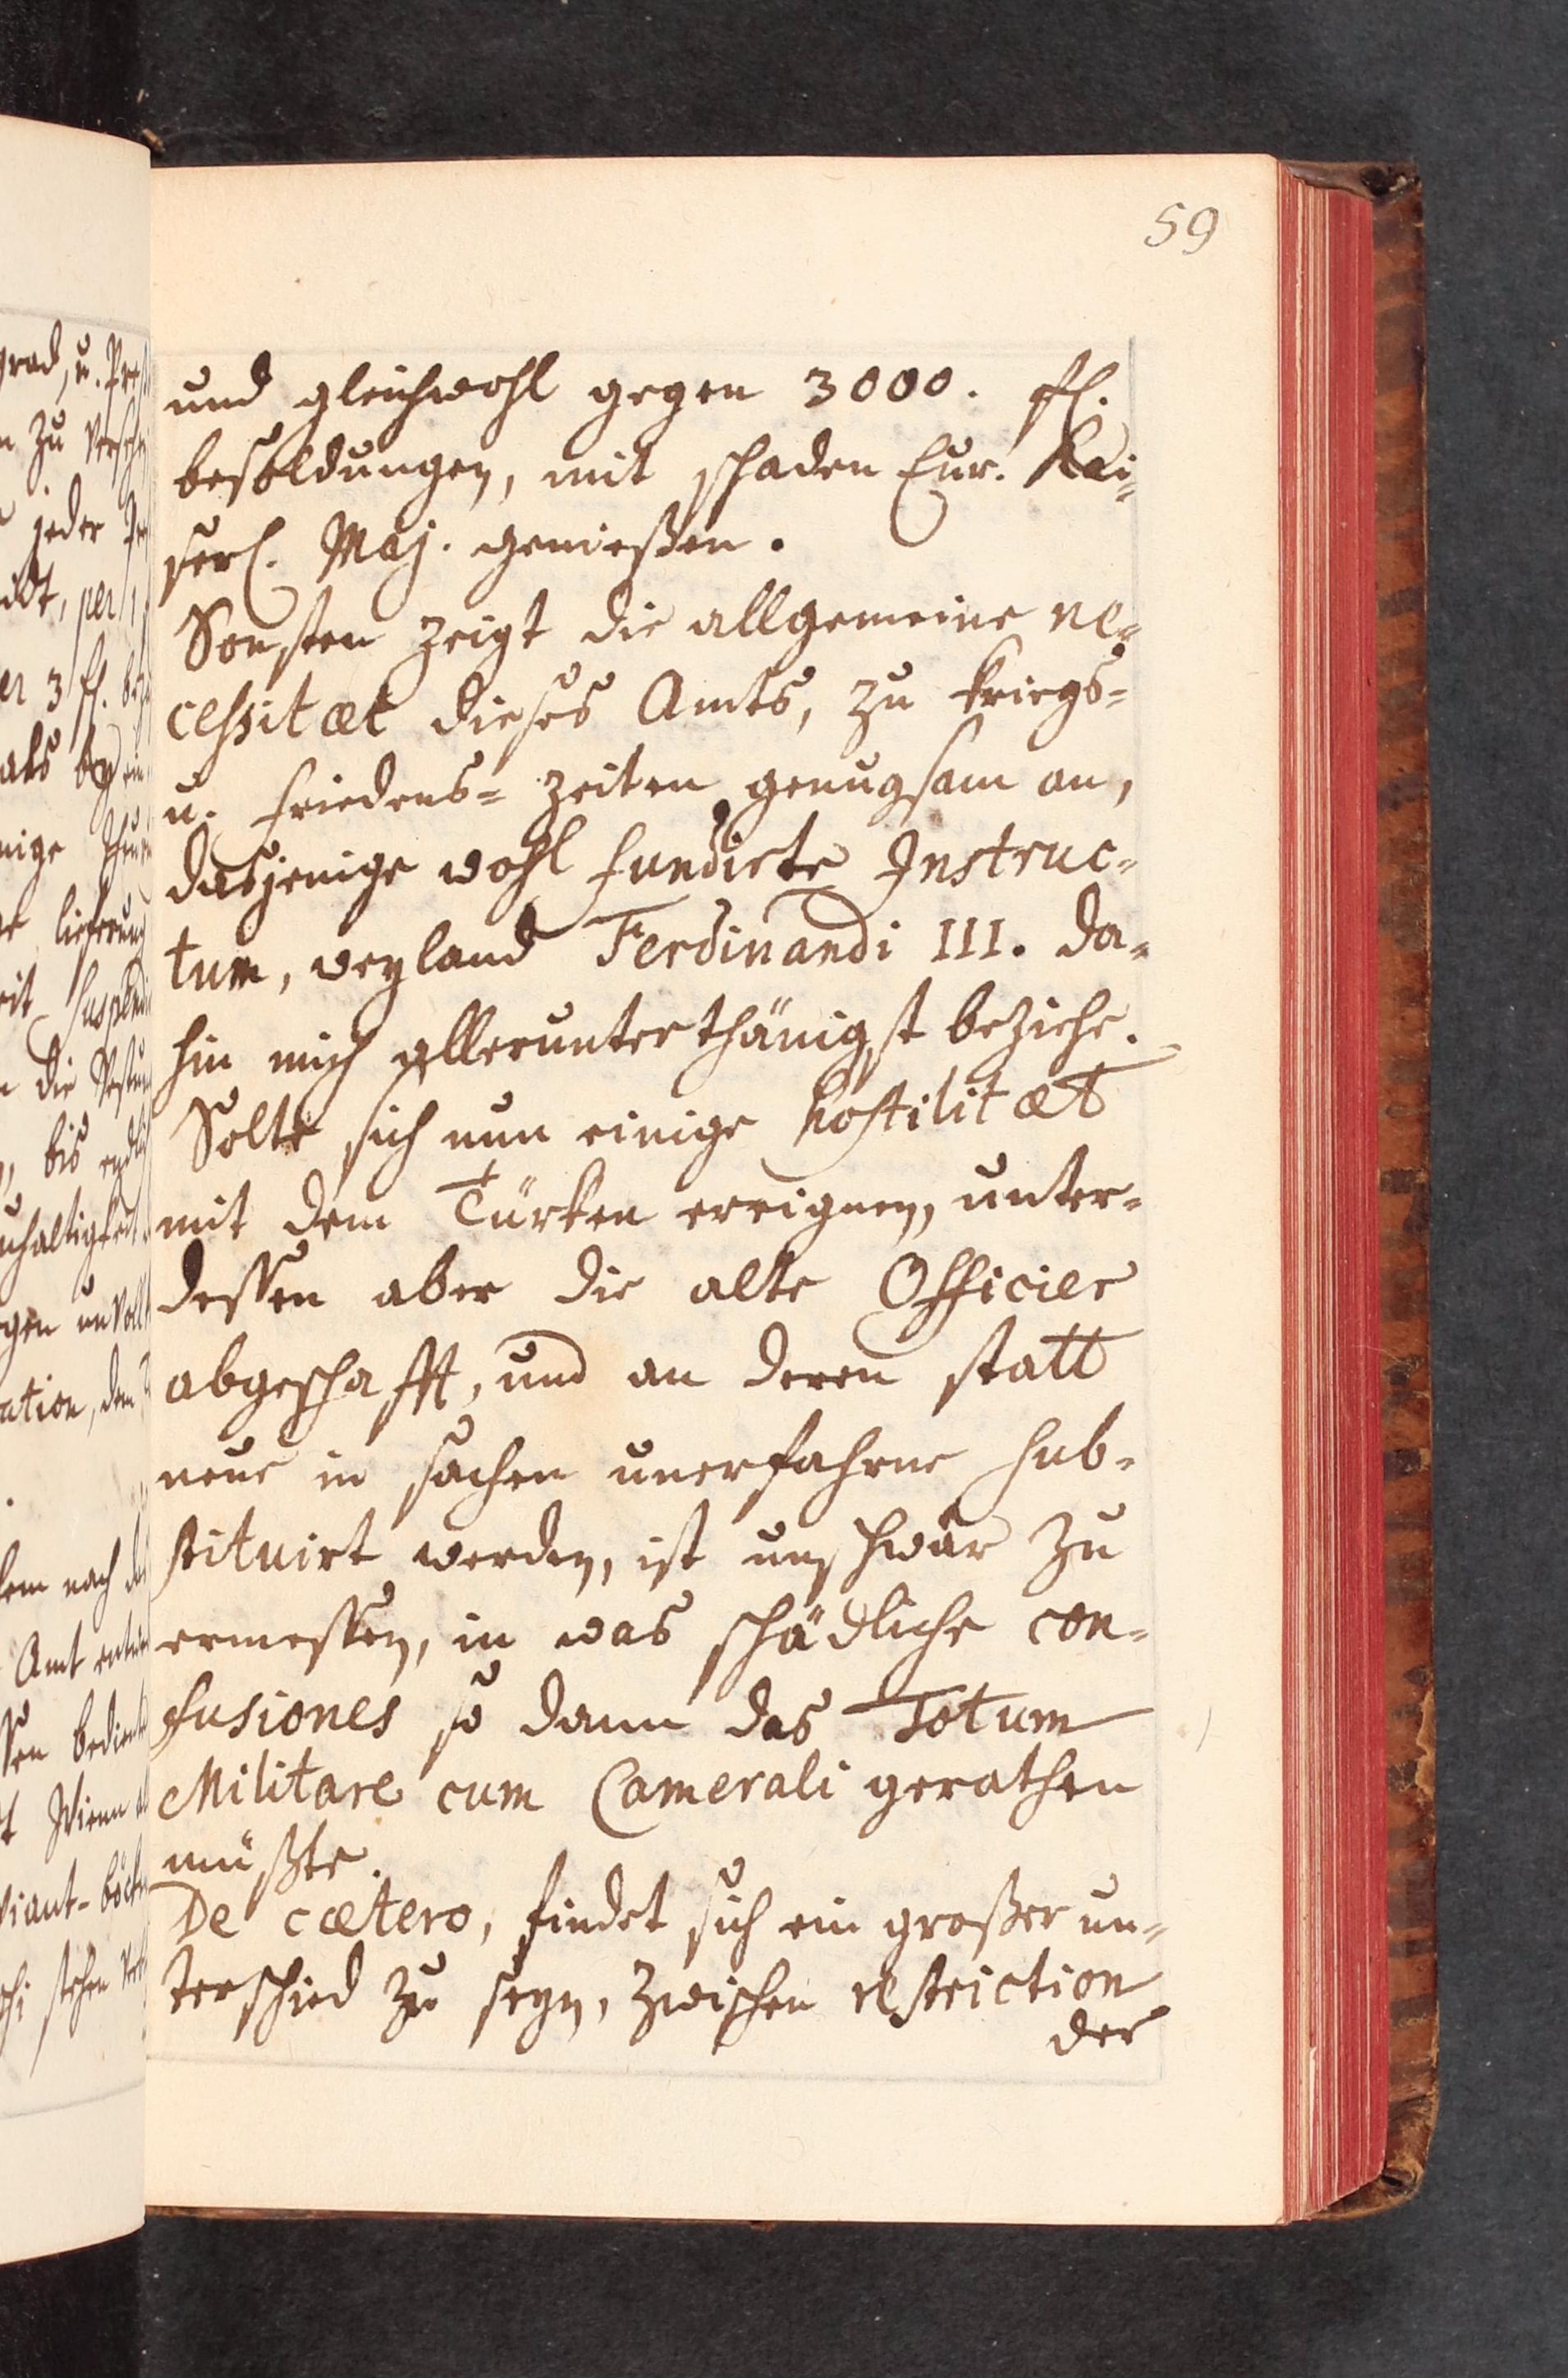 59
und gleichwohl gegen 3000. fl.
besoldungen, mit schaden Eur. Kai=
serl. Maj. geniessen.
Sonsten zeigt die allgemeine ne=
cessitæt dieses Amts, zu kriegs=
u. friedens= zeiten genugsam an,
dasjenige wohl fundirte Instruc=
tum, weyland Ferdinandi III. da=
hin mich allerunterthänigst beziehe.
Solte sich nun einige hostilitæt
mit dem Türken ereignen, unter=
dessen aber die alte Officier
abgeschafft, und an deren statt
neue in sachen unerfahrne sub=
stituirt werden, ist unschwär zu
ermessen, in was schädliche con=
fusiones so dann das Totum
Militare cum Camerali gerathen
müßte.
De cætero, findet sich ein großer un=
terschied zu seyn, zwischen restriction
der